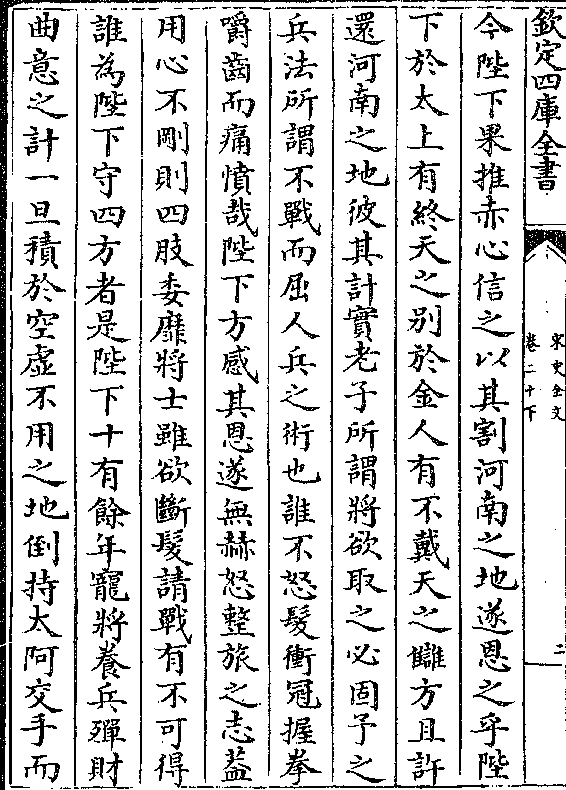 欽定四庫全書
宋史全文
卷二十下
二
今陛下果推赤心信之以其割河南之地遂恩之乎陛
下於太上有終天之别於金人有不戴天之讎方且許
還河南之地彼其計實老子所謂將欲取之必固予之
兵法所謂不戰而屈人兵之術也誰不怒髮衝冠握拳
嚼齒而痛憤哉陛下方感其恩遂無赫怒整旅之志葢
用心不剛則四肢委靡將士雖欲斷髮請戰有不可得
誰為陛下守四方者是陛下十有餘年寵將養兵殫財
曲意之計一旦積於空虛不用之地倒持太阿交手而